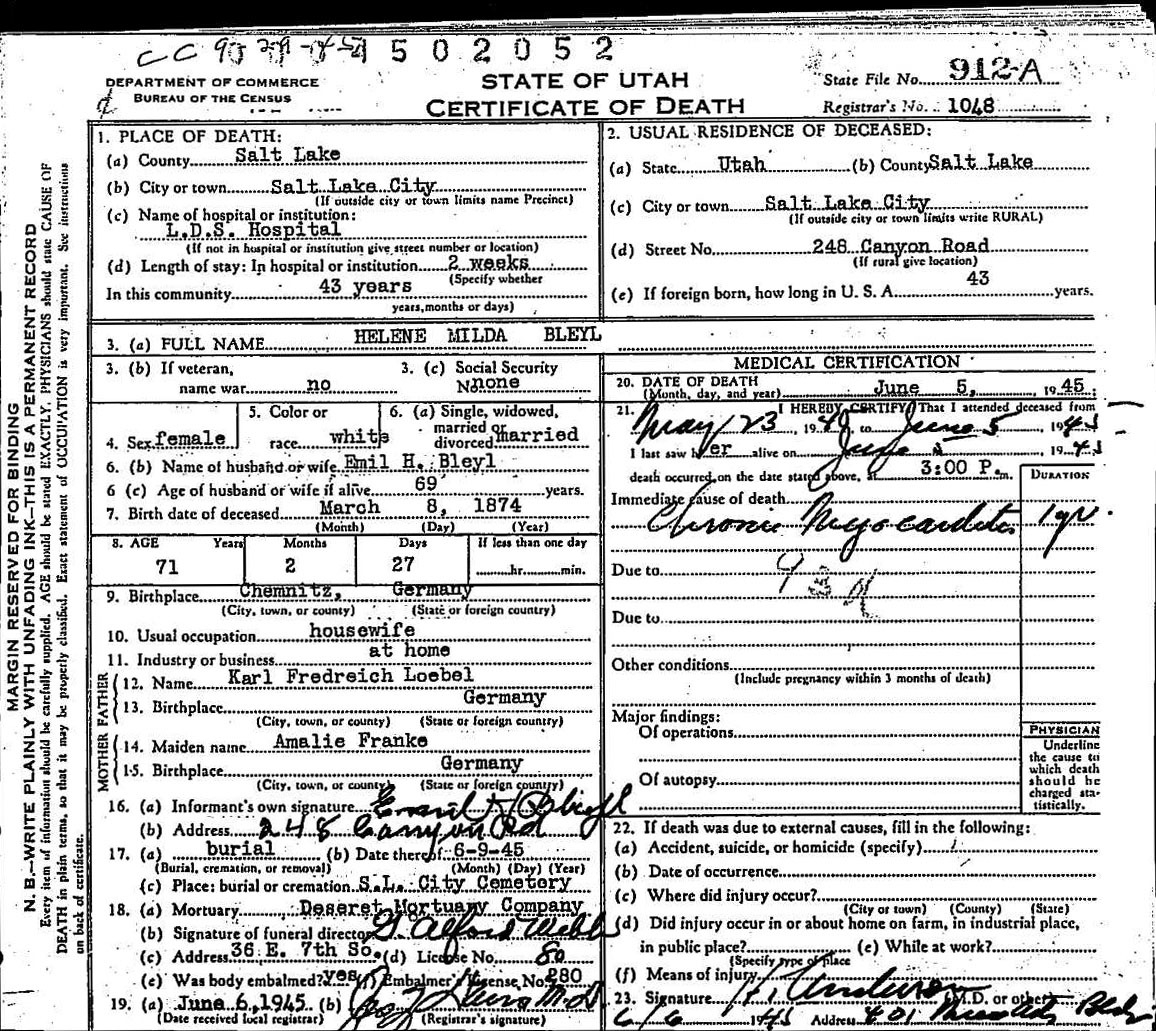 502052
DEPARTMENT OF COMMERCE
BUREAU OF THE CENSUS
STATE OF UTAH
CERTIFICATE OF DEATH
State File No. 912-A
Registrar's No. : 1048
MARGIN RESERVED FOR BINDING
N. B.—WRITE PLAINLY WITH UNFADING INK—THIS IS A PERMANENT RECORD
Every item of information should be carefully supplied. AGE should be stated EXACTLY. PHYSICIANS should state CAUSE OF
DEATH in plain terms, so that it may be properly classified. Exact statement of OCCUPATION is very important. See instructions
on back of certificate.
1. PLACE OF DEATH:
(a) County Salt Lake
(b) City or town Salt Lake City
(If outside city or town limits name Precinct)
(c) Name of hospital or institution:
L.D.S. Hospital
(If not in hospital or institution give street number or location)
(d) Length of stay: In hospital or institution 2 weeks
(Specify whether
In this community 43 years
years, months or days)
2. USUAL RESIDENCE OF DECEASED:
(a) State Utah (b) County Salt Lake
(c) City or town Salt Lake City
(If outside city or town limits write RURAL)
(d) Street No. 248 Canyon Road
(If rural give location)
(e) If foreign born, how long in U. S. A. 43 years.
3. (a) FULL NAME HELENE MILDA BLEYL
3. (b) If veteran,
name war no
3. (c) Social Security
No. none
4. Sex female
5. Color or
race white
6. (a) Single, widowed,
married or
divorced married
6. (b) Name of husband or wife Emil H. Bleyl
6 (c) Age of husband or wife if alive 69 years.
7. Birth date of deceased March 8, 1874
(Month) (Day) (Year)
8. AGE Years Months Days If less than one day
71 2 27 hr. min.
9. Birthplace Chemnitz, Germany
(City, town, or county) (State or foreign country)
10. Usual occupation housewife
11. Industry or business at home
FATHER
12. Name Karl Fredreich Loebel
13. Birthplace Germany
(City, town, or county) (State or foreign country)
MOTHER
14. Maiden name Amalie Franke
15. Birthplace Germany
(City, town, or county) (State or foreign country)
16. (a) Informant's own signature Emil H Bleyl
(b) Address 248 Canyon Rd
17. (a) burial (b) Date thereof 6-9-45
(Burial, cremation, or removal) (Month) (Day) (Year)
(c) Place: burial or cremation S.L. City Cemetery
18. (a) Mortuary Deseret Mortuary Company
(b) Signature of funeral director Alford Webb
(c) Address 36 E. 7th So. (d) License No. 80
(e) Was body embalmed? yes (f) Embalmer's License No. 280
19. (a) June 6, 1945 (b) M.D.
(Date received local registrar) (Registrar's signature)
MEDICAL CERTIFICATION
20. DATE OF DEATH
(Month, day, and year) June 5, 1945
21. I HEREBY CERTIFY, That I attended deceased from
May 23, 1945 to June 5, 1945
I last saw her alive on June 5 1945
death occurred on the date stated above, at 3:00 P. m.
DURATION
Immediate cause of death
Chronic Myocarditis 1 yr.
Due to
93
Due to
Other conditions
(Include pregnancy within 3 months of death)
Major findings:
Of operations
Of autopsy
PHYSICIAN
Underline
the cause to
which death
should be
charged sta-
tistically.
22. If death was due to external causes, fill in the following:
(a) Accident, suicide, or homicide (specify)
(b) Date of occurrence
(c) Where did injury occur?
(City or town) (County) (State)
(d) Did injury occur in or about home on farm, in industrial place,
in public place? (e) While at work?
(Specify type of place
(f) Means of injury
23. Signature Anderson (M.D. or other)
6/6 1945 Address 401 Bldg